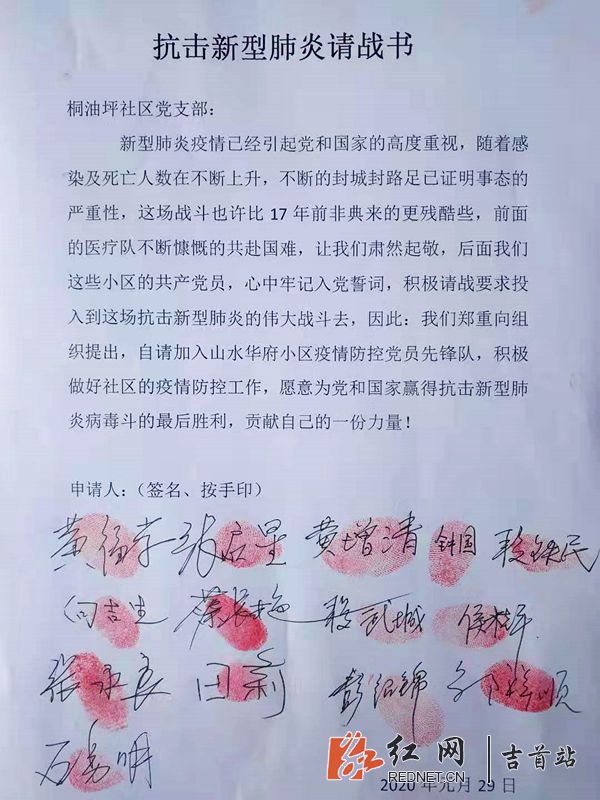 抗击新型肺炎请战书
桐油坪社区党支部：
新型肺炎疫情已经引起党和国家的高度重视，随着感
染及死亡人数在不断上升，不断的封城封路足已证明事态的
严重性，这场战斗也许比 17 年前非典来的更残酷些，前面
的医疗队不断慷慨的共赴国难，让我们肃然起敬，后面我们
这些小区的共产党员，心中牢记入党誓词，积极请战要求投
入到这场抗击新型肺炎的伟大战斗去，因此：我们郑重向组
织提出，自请加入山水华府小区疫情防控党员先锋队，积极
做好社区的疫情防控工作，愿意为党和国家赢得抗击新型肺
炎病毒斗的最后胜利，贡献自己的一份力量！
申请人：（签名、按手印）
黄增清
向吉生
张承良 田莉 彭绍锦
石秀明
红网 吉首站
REDNET.CN
2020 年元月 29 日